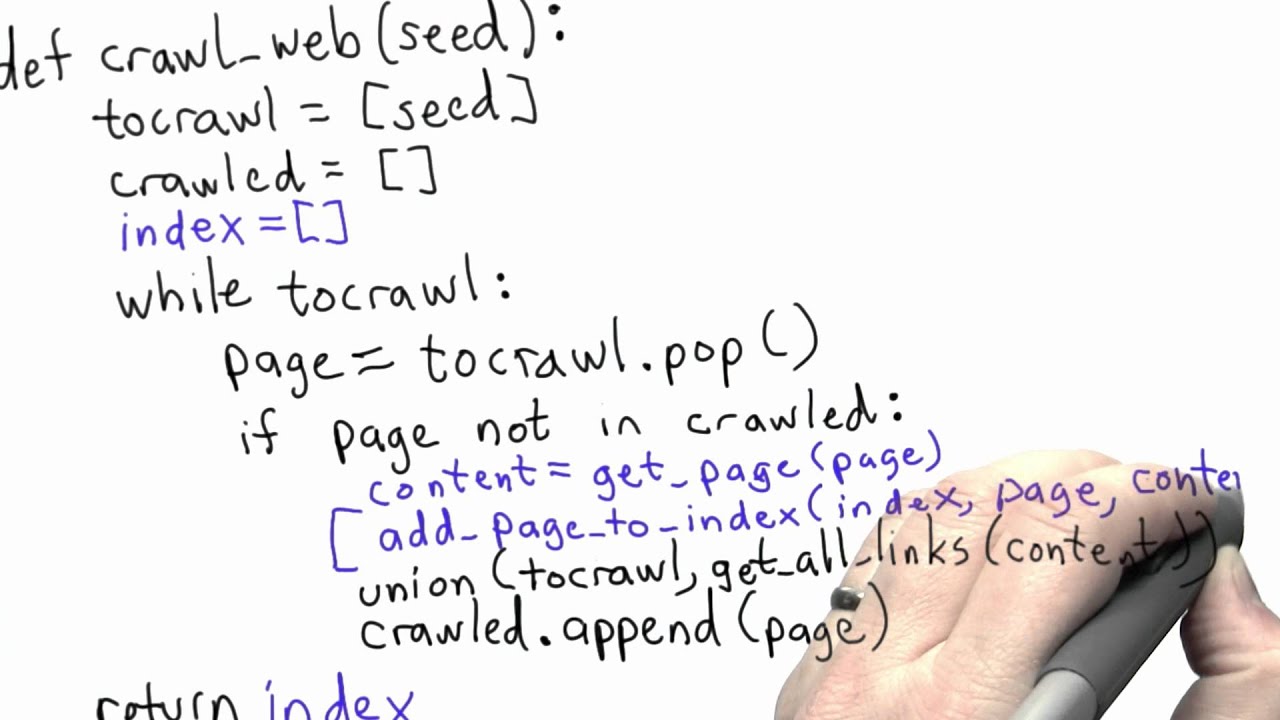 def crawl_web(seed):
tocrawl = [seed]
crawled = []
index = []
while tocrawl:
page = tocrawl.pop()
if page not in crawled:
content = get_page(page)
[ add_page_to_index(index, page, conten
union(tocrawl, get_all_links(content))
crawled.append(page)
return index